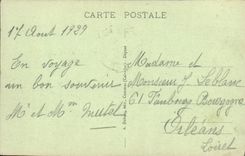 CARTE POSTALE
17 Aout 1929
En voyage
un bon souvenir
Mr et Mme
Madame et
Monsieur J. Leblanc
61 Faubourg Bourgogne
Orléans
Loiret